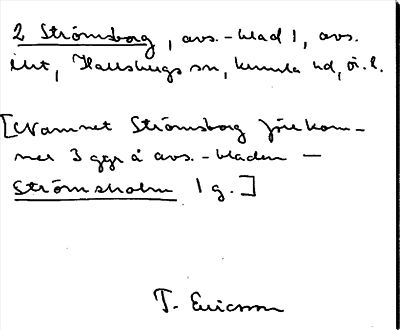 2 Strömsborg, avs.-blad 1, avs.
int, Hallsbergs sn, Kumla hd, ör. l.
[Namnet Strömsborg förekom-
mer 3 ggr å avs.-bladen —
Strömsholm 1 g.]
T. Ericsson